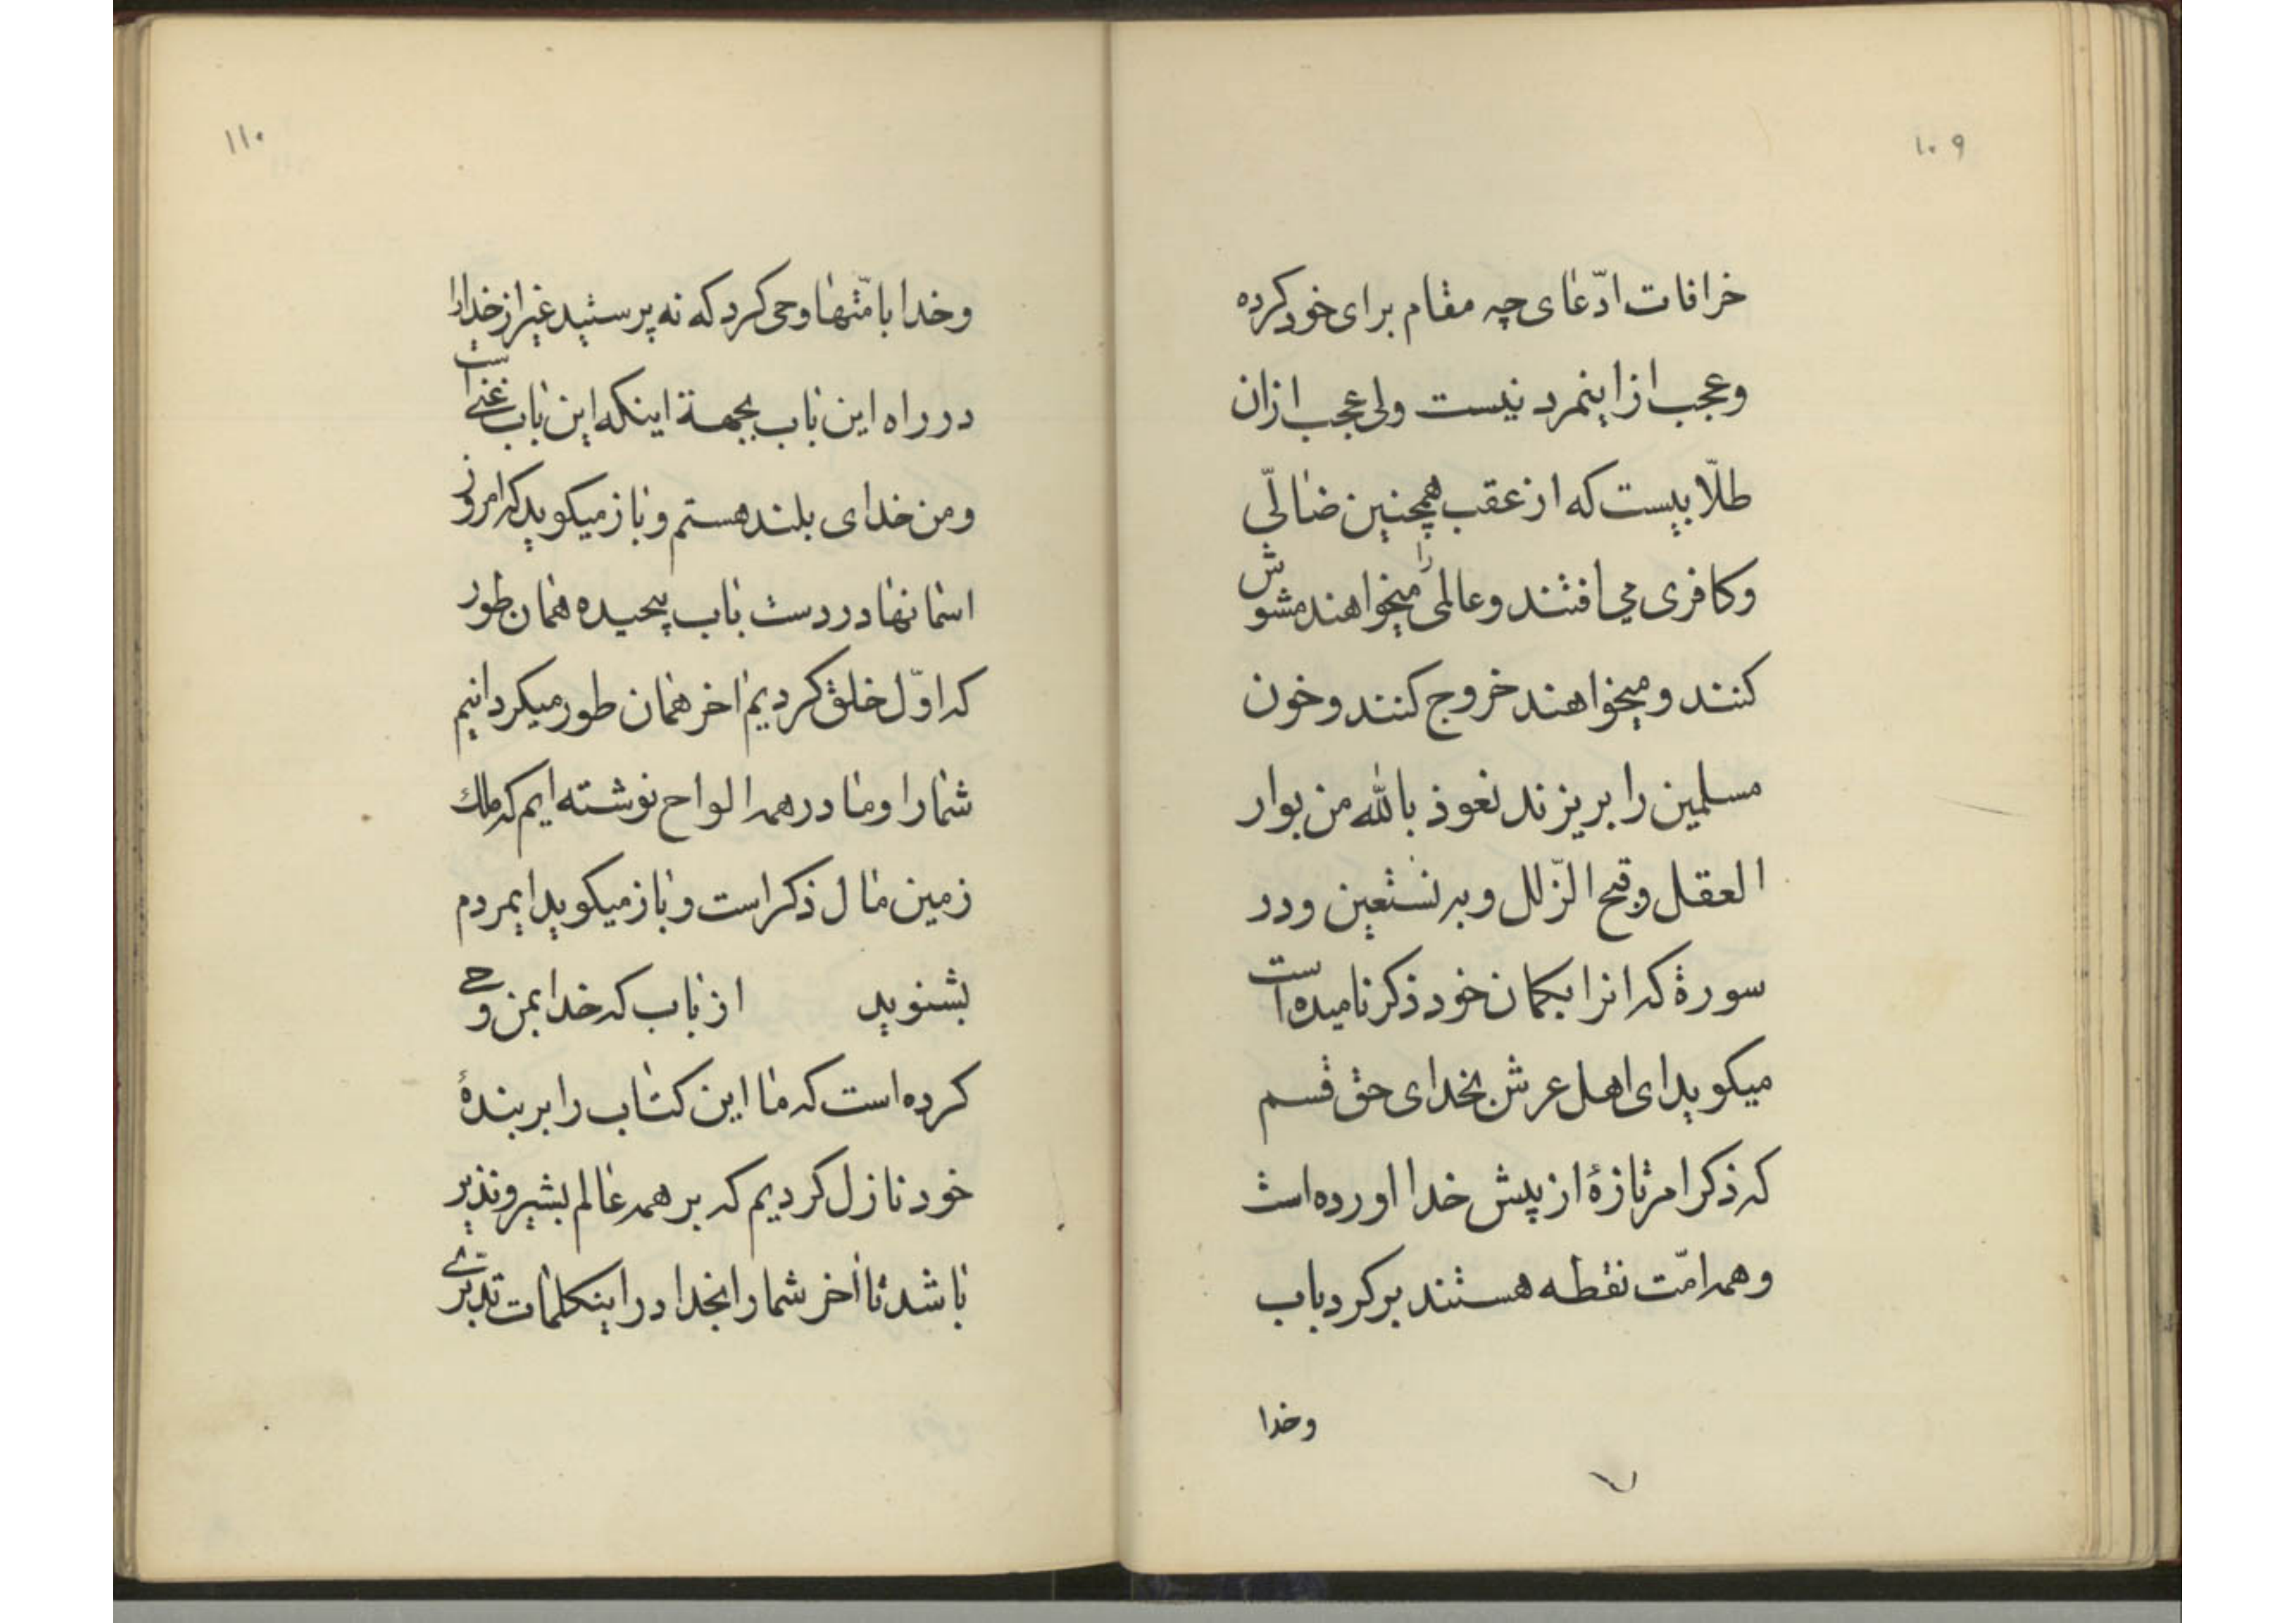 ۱۰۹
خرافات ادّعای چه مقام برای خود کرده
و عجب از اینمرد نیست ولی عجب ازان
طلّابیست که از عقب همچنین ضالّی
و کافری می افتند و عالمی را میخواهند مشوش
کنند و میخواهند خروج کنند و خون
مسلمین را بریزند نعوذ بالله من بوار
العقل و قبح الزّلل و به نستعین و در
سورهٔ که انرا بکمان خود ذکر نامیده است
میکوید ای اهل عرش بخدای حق قسم
که ذکر امر تازهٔ از پیش خدا اورده است
و همه امّت نقطه هستند بر کرد باب
و خدا
۱۱۰
و خدا بامّتها وحی کرد که نه پرستید غیر از خدا را
در راه این باب بجهة اینکه این باب غنی است
و من خدای بلند هستم و باز میکوید که امروز
اسمانها در دست باب پیچیده همان طور
که اوّل خلق کردیم اخر همان طور میکردانیم
شما را و ما در همه الواح نوشته ایم که ملك
زمین مال ذکر است و باز میکوید ایمردم
بشنوید از باب که خدا بمن وحی
کرده است که ما این کتاب را بر بندهٔ
خود نازل کردیم که بر همه عالم بشیر و نذیر
باشد تا اخر شما را بخدا در اینکلمات تدبری